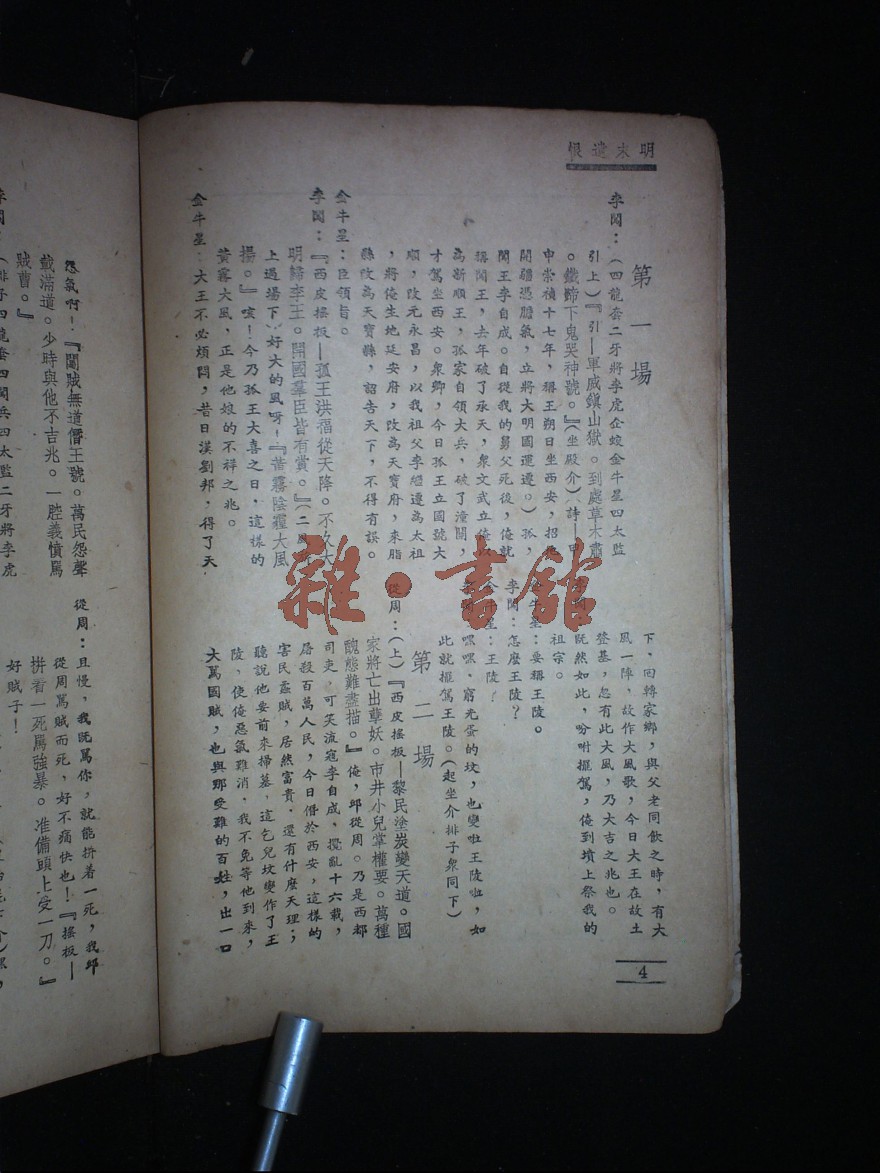 明末遺恨
第一場
李闖：（四龍套二牙將李虎企蛟金牛星四太監
引上）『引—軍威鎮山獄。到處草木肅
。鐵蹄下鬼哭神號。』（坐殿介）（詩—甲
申崇禎十七年，稱王朔日坐西安，招
開疆憑膽氣，立將大明國運遷。）孤，
闖王李自成。自從我的舅父死後，俺就
稱闖王，去年破了承天，衆文武立俺
為新順王，孤家自領大兵，破了潼關，
才駕坐西安。衆鄉，今日孤王立國號大
順，改元永昌，以我祖父李繼遷為太祖
，將俺生地延安府，改為天寶府，米脂
縣改為天寶縣，詔告天下，不得有誤。
金牛星：臣領旨。
李闖：『西皮搖板—孤王洪福從天降。不久大
明歸李王。開國羣臣皆有賞。』（二
上過場下）好大的風呀！『黃霧陰霾大風
揚。』咳！今乃孤王大喜之日，這樣的
黃霧大風，正是他娘的不祥之兆。
金牛星：大王不必煩悶，昔日漢劉邦，得了天
下，回轉家鄉，與父老同飲之時，有大
風一陣，故作大風歌，今日大王在故土
登基，忽有此大風，乃大吉之兆也。
既然如此，吩咐擺駕，俺到墳上祭我的
祖宗。
金牛星：要稱王陵。
李闖：怎麼王陵？
王陵！
嘿嘿，窮光蛋的墳，也變啦王陵啦，如
此就擺駕王陵。（起坐介排子衆同下）
第二場
從周：（上）『西皮搖板—黎民塗炭變天道。國
家將亡出孽妖。市井小兒掌權要。萬種
醜態難盡描。』俺，邱從周。乃是西都
司吏，可笑流寇李自成，擾亂十六載，
屠殺百萬人民，今日僭於西安，這樣的
害民蟊賊，居然富貴，還有什麼天理；
聽說他要前來掃墓，這乞兒墳變作了王
陵，使俺惡氣難消，我不免等他到來，
大罵國賊，也與那受難的百姓，出一口
4
怨氣啊！『闖賊無道僭王號。萬民怨聲
載滿道。少時與他不吉兆。一腔義憤罵
賊曹。』
李闖：（排子四龍套四闖兵四太監二牙將李虎
從周：且慢，我既罵你，就能拚着一死，我邱
從周罵賊而死，好不痛快也！『搖板—
拚着一死罵強暴。准備頭上受一刀。』
好賊子！
雜·書館